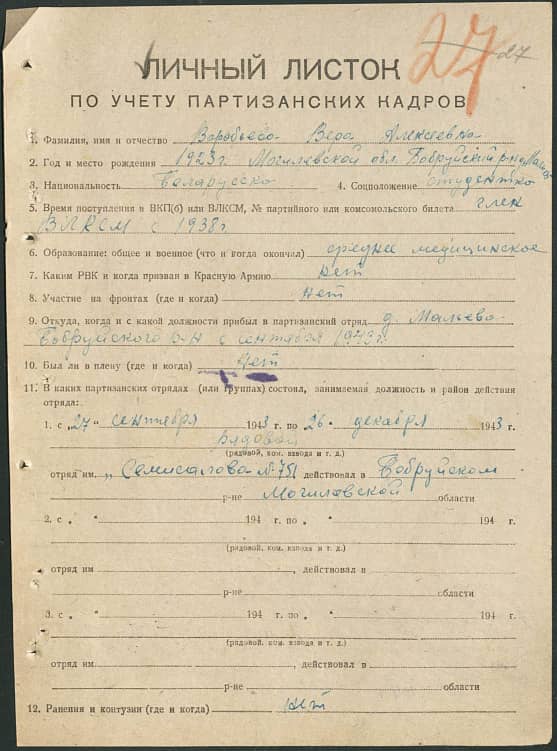 27
27
ЛИЧНЫЙ ЛИСТОК
ПО УЧЕТУ ПАРТИЗАНСКИХ КАДРОВ
1. Фамилия, имя и отчество Воробьева Вера Алексеевна
2. Год и место рождения 1923г. Могилевской обл. Бобруйский р-н д.
3. Национальность Беларусска 4. Соцположение студентка
5. Время поступления в ВКП(б) или ВЛКСМ, № партийного или комсомольского билета член
ВЛКСМ с 1938г.
6. Образование: общее и военное (что и когда окончил) среднее медицинское
7. Каким РВК и когда призван в Красную Армию нет
8. Участие на фронтах (где и когда) нет
9. Откуда, когда и с какой должности прибыл в партизанский отряд д.
Бобруйского р-н с сентября 1943г.
10. Был ли в плену (где и когда) нет
11. В каких партизанских отрядах (или группах) состоял, занимаемая должность и район действия
отряда:
1. с „27“ сентября 1943 г. по „26“ декабря 1943 г.
Рядовой
(рядовой, ком. взвода и т. д.)
отряд им. „Семисалова №751 действовал в Бобруйском
р-не Могилевской области
2. с „ “ 194 г. по „ “ 194 г.
(рядовой, ком. взвода и т. д.)
отряд им , действовал в
р-не области
3. с „ “ 194 г. по „ “ 194 г.
(рядовой, ком. взвода и т. д.)
отряд им. , действовал в
р-не области
12. Ранения и контузии (где и когда) нет